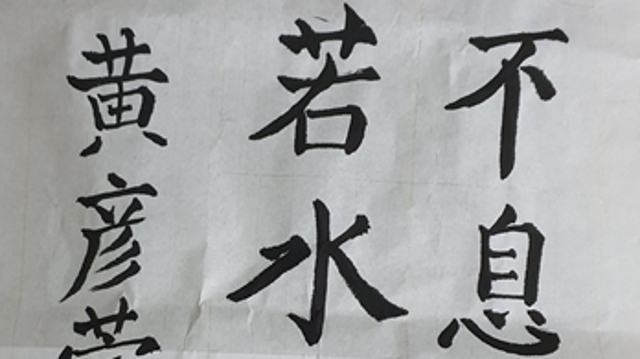 不息
若水
黄彦